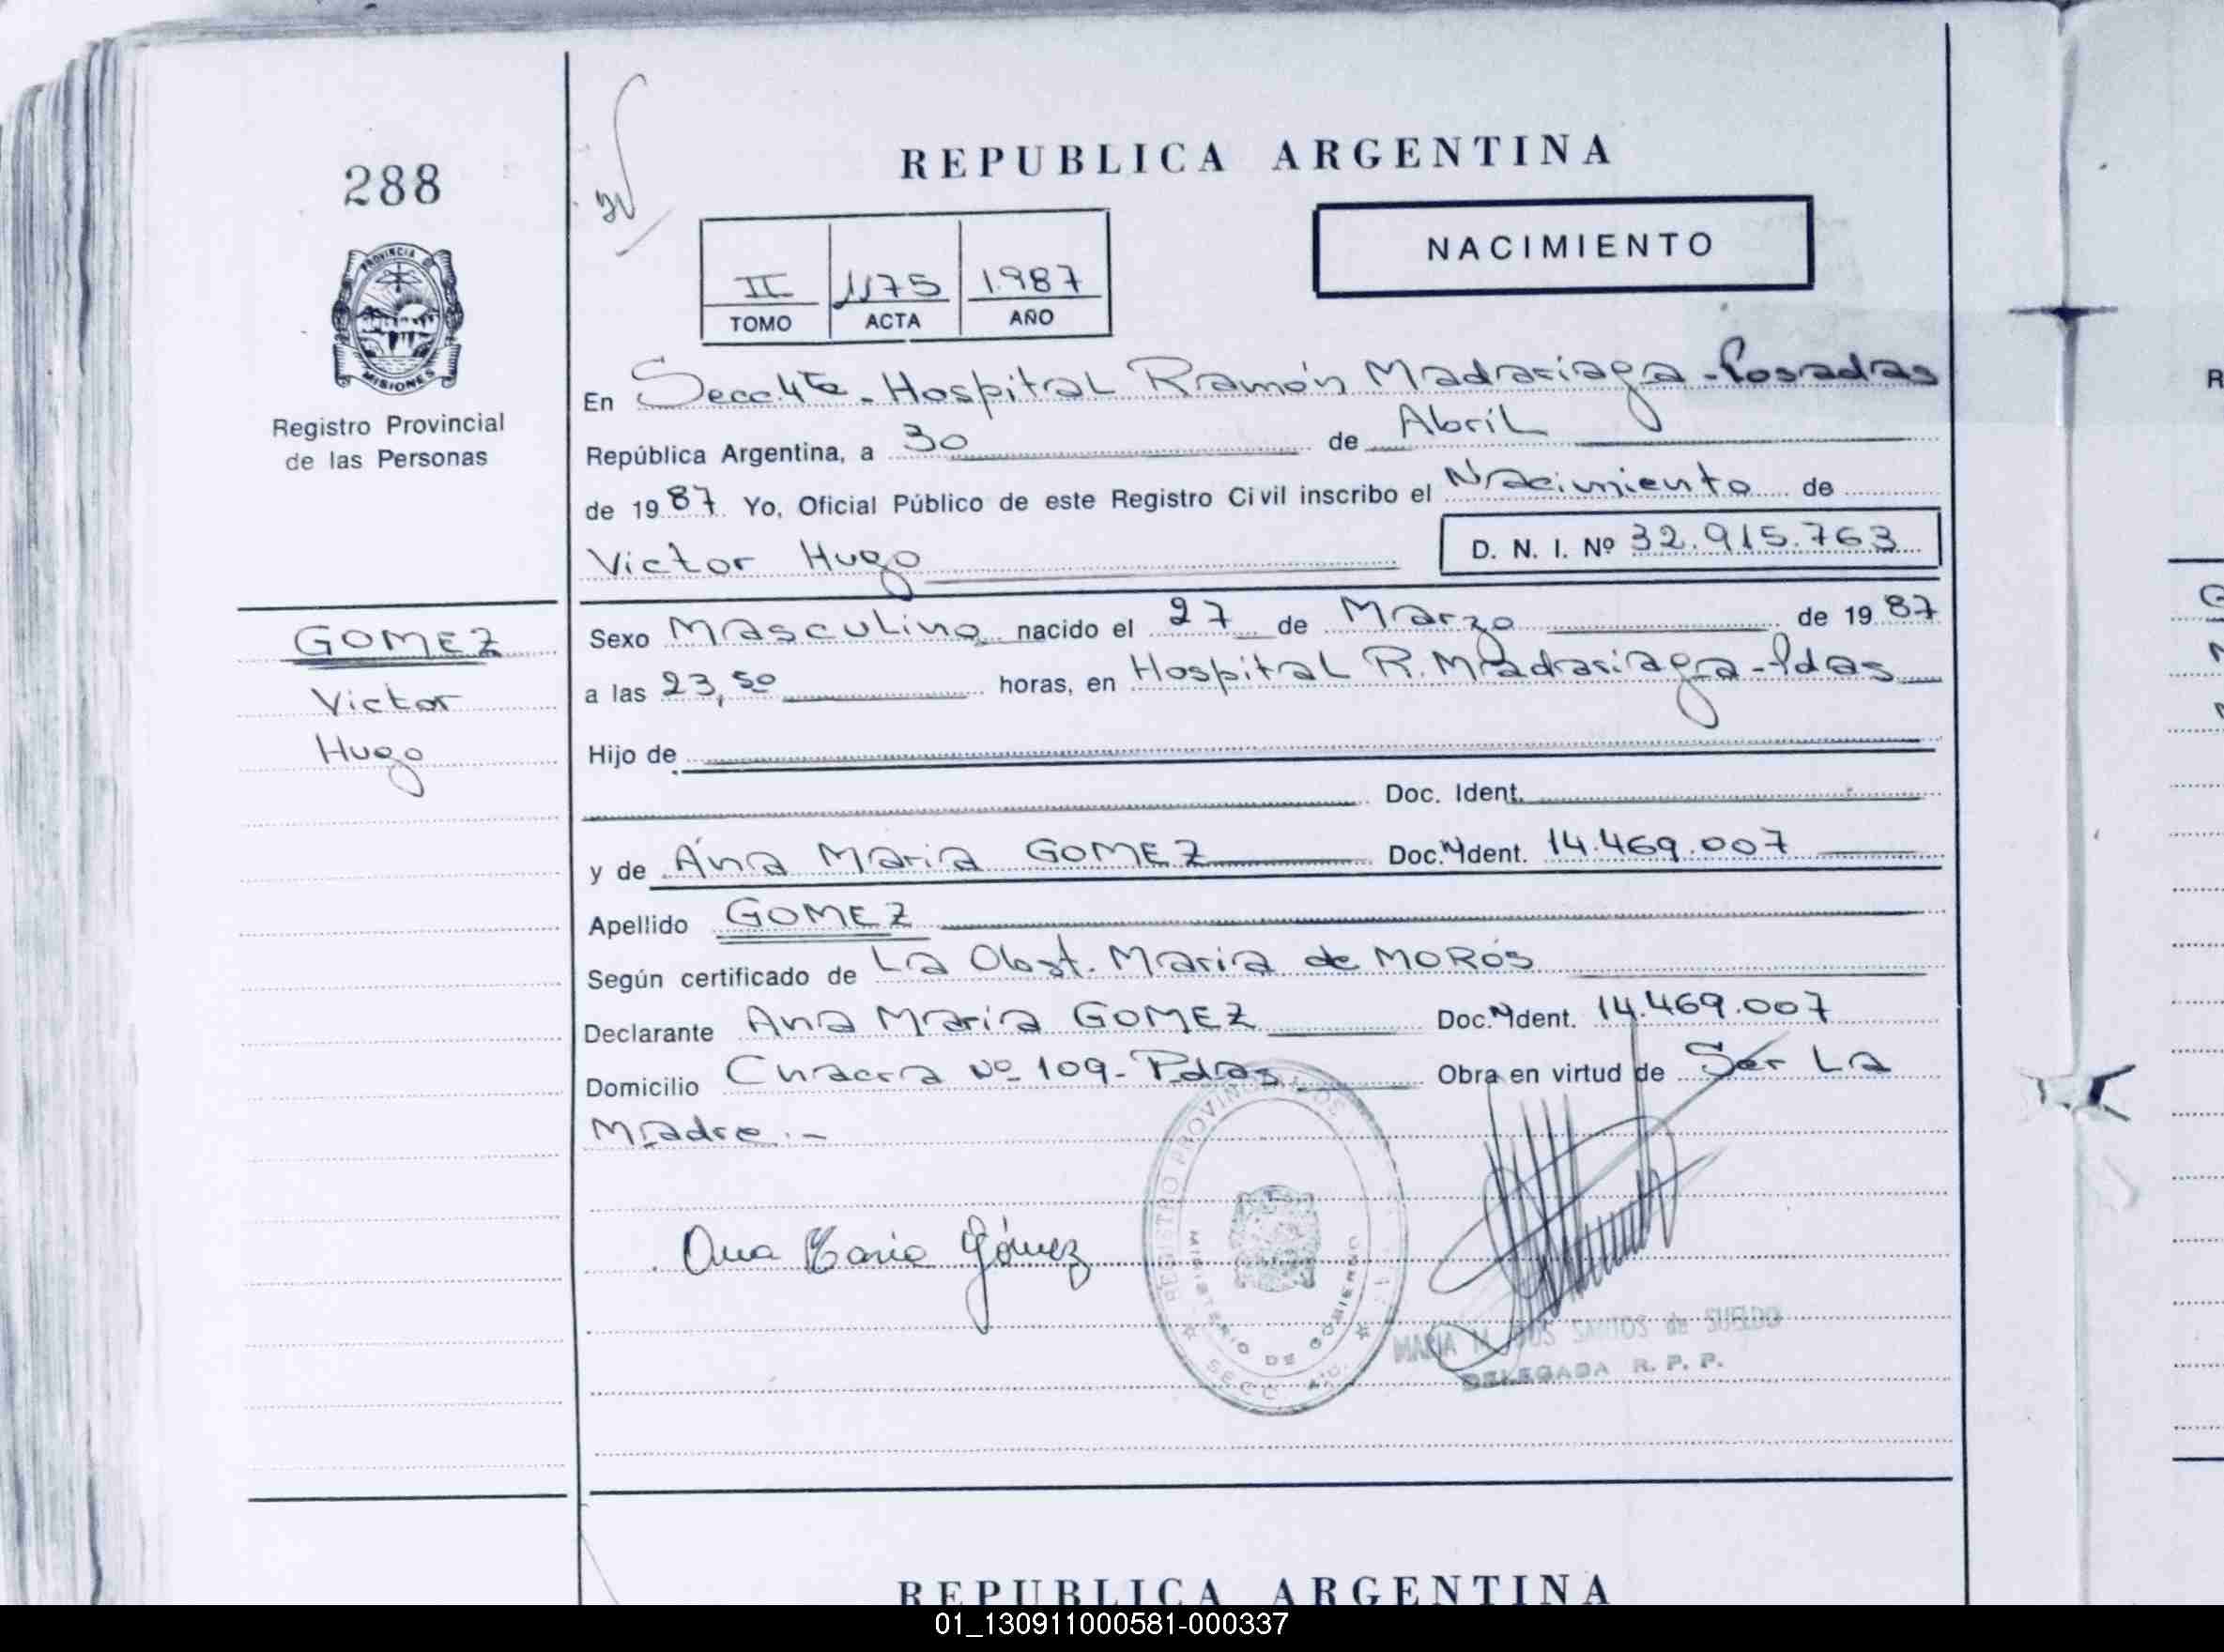 288
PROVINCIA DE
MISIONES
Registro Provincial
de las Personas
REPUBLICA ARGENTINA
NACIMIENTO
II 1175 1.987
TOMO ACTA AÑO
En Secc. 4ta. Hospital Ramón Madariaga - Posadas
República Argentina, a 30 de Abril
de 1987. Yo, Oficial Público de este Registro Civil inscribo el Nacimiento de
Victor Hugo D. N. I. Nº 32.915.763
GOMEZ
Victor
Hugo
Sexo Masculino nacido el 27 de Marzo de 1987
a las 23,50 horas, en Hospital R. Madariaga - Pdas
Hijo de
Doc. Ident.
y de Ana Maria GOMEZ Doc. Ident. 14.469.007
Apellido GOMEZ
Según certificado de La Obst. Maria de MOROS
Declarante Ana Maria GOMEZ Doc. Ident. 14.469.007
Domicilio Chacra Nº 109 - Pdas Obra en virtud de Ser La
Madre.-
Ana Maria Gómez
REGISTRO PROVINCIAL DE
MINISTERIO DE GOBIERNO
SECC. 4ta.
MARIA M. DOS SANTOS de SUELDO
DELEGADA R. P. P.
REPUBLICA ARGENTINA
01_130911000581-000337